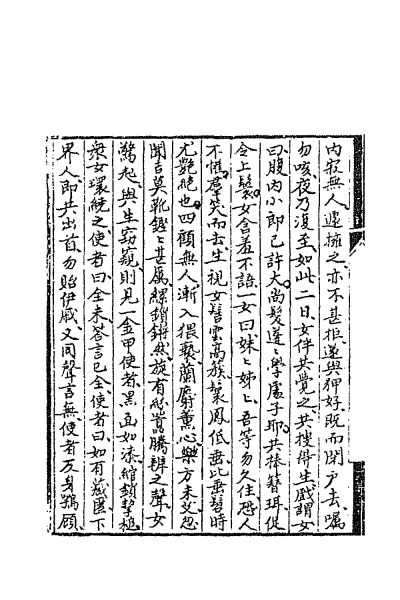 内寂無人遽擁之亦不甚拒遂與狎好既而閉户去囑
勿咳夜乃復至如此二日女伴共覺之共搜得生戲謂女
曰腹内小郎已許大尚髮蓬蓬學處子耶共捧簪珥促
令上鬟女含羞不語一女曰妹上姊上吾等勿久住恐人
不懽羣笑而去生視女髻雲高簇鬟鳳低垂比垂髫時
尤艶絶也四顧無人漸入猥褻蘭麝熏心樂方未艾忽
聞吉莫靴鏗上甚厲縲鎖鏘然旋有紛囂騰辨之聲女
驚起與生窃窺則見一金甲使者黑面如漆綰鎖挈槌
衆女環繞之使者曰全未答言已全使者曰如有藏匿下
界人即共出首勿貽伊戚又同聲言無使者反身鶚顧